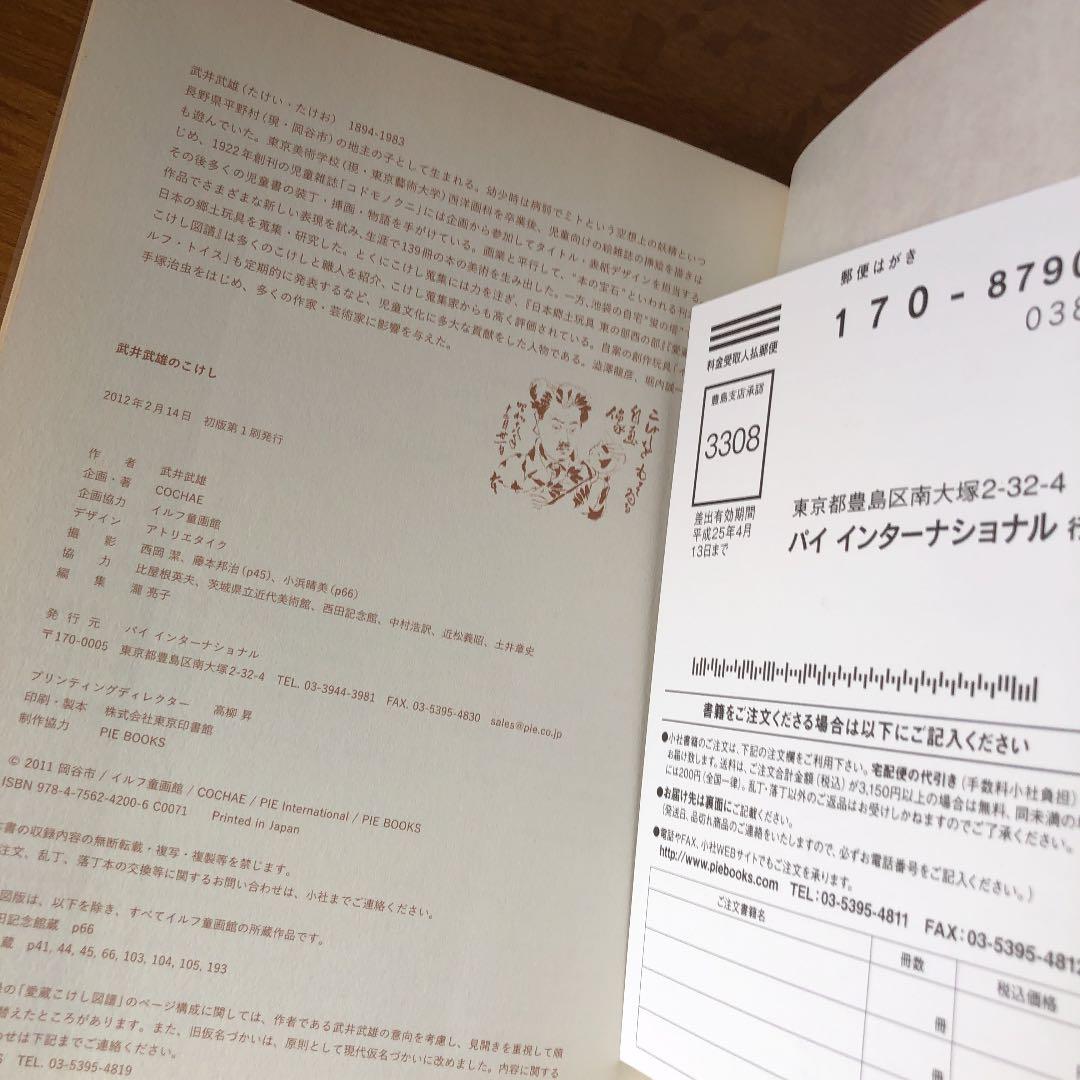 武井武雄(たけい・たけお) 1894-1983
長野県平野村(現・岡谷市)の地主の子として生まれる。幼少時は病弱でミトという空想上の妖精といつ
も遊んでいた。東京美術学校(現・東京藝術大学)西洋画科を卒業後、児童向けの絵雑誌の挿絵を描きは
じめ、1922年創刊の児童雑誌「コドモノクニ」には企画から参加してタイトル・表紙デザインを担当する。
その後多くの児童書の装丁・挿画・物語を手がけている。画業と平行して、“本の宝石”といわれる刊
作品でさまざまな新しい表現を試み、生涯で139冊の本の美術を生み出した。一方、池袋の自宅
日本の郷土玩具を蒐集・研究した。とくにこけし蒐集には力を注ぎ、『日本郷土玩具 東の部西の部』『愛蔵
こけし図譜』は多くのこけしと職人を紹介、こけし蒐集家からも高く評価されている。自案の創作玩具「イ
ルフ・トイス」も定期的に発表するなど、児童文化に多大な貢献をした人物である。澁澤龍彦、堀内誠一
手塚治虫をはじめ、多くの作家・芸術家に影響を与えた。
武井武雄のこけし
2012年2月14日 初版第1刷発行
作者 武井武雄
企画・著 COCHAE
企画協力 イルフ童画館
デザイン アトリエタイク
撮影 西岡 潔、藤本邦治(p45)、小浜晴美(p66)
協力 比屋根英夫、茨城県立近代美術館、西田記念館、中村浩訳、近松義昭、土井章史
編集 瀧 亮子
発行元 パイ インターナショナル
〒170-0005 東京都豊島区南大塚2-32-4 TEL. 03-3944-3981 FAX. 03-5395-4830 sales@pie.co.jp
プリンティングディレクター 高柳 昇
印刷・製本 株式会社東京印書館
制作協力 PIE BOOKS
© 2011 岡谷市 / イルフ童画館 / COCHAE / PIE International / PIE BOOKS
ISBN 978-4-7562-4200-6 C0071 Printed in Japan
書の収録内容の無断転載・複写・複製等を禁じます。
注文、乱丁、落丁本の交換等に関するお問い合わせは、小社までご連絡ください。
図版は、以下を除き、すべてイルフ童画館の所蔵作品です。
田記念館蔵 p66
蔵 p41, 44, 45, 66, 103, 104, 105, 193
の「愛蔵こけし図譜」のページ構成に関しては、作者である武井武雄の意向を考慮し、見開きを重視して順
替えたところがあります。また、旧仮名づかいは、原則として現代仮名づかいに改めました。内容に関する
わせは下記までご連絡ください。
S TEL. 03-5395-4819
郵便はがき
170-8790
038
料金受取人払郵便
豊島支店承認
3308
差出有効期間
平成25年4月
13日まで
東京都豊島区南大塚2-32-4
パイ インターナショナル 行
書籍をご注文くださる場合は以下にご記入ください
●小社書籍のご注文は、下記の注文欄をご利用下さい。宅配便の代引き(手数料小社負担)
お届け致します。送料は、ご注文合計金額(税込)が3,150円以上の場合は無料、同未満の
には200円(全国一律)。乱丁・落丁以外のご返品はお受けしかねますのでご了承ください。
●お届け先は裏面にご記載ください。
(発送日、品切れ商品のご連絡をいたしますので、必ずお電話番号をご記入ください。)
●電話やFAX、小社WEBサイトでもご注文を承ります。
http://www.piebooks.com TEL:03-5395-4811 FAX:03-5395-4812
ご注文書籍名
冊数
税込価格
冊
冊